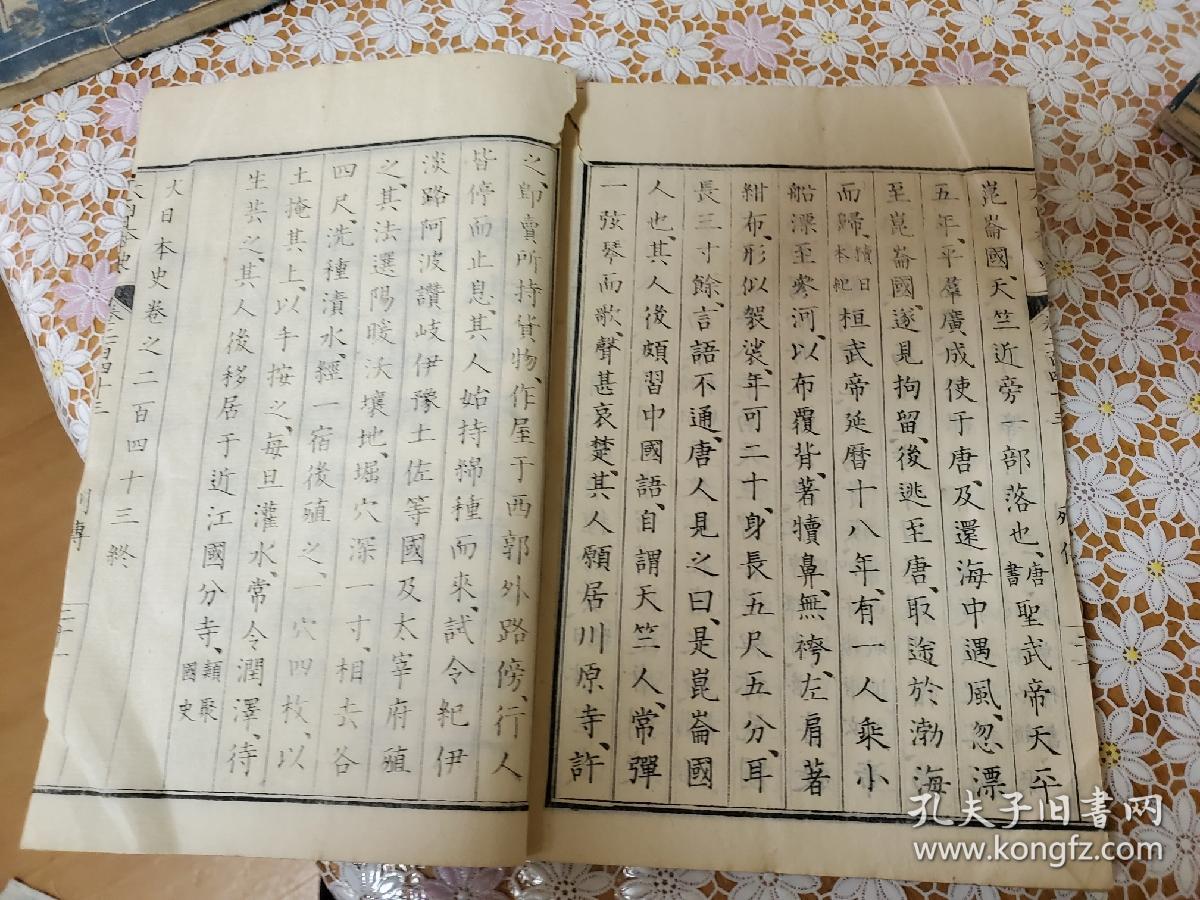 崑崙國、天竺近旁一部落也、唐書聖武帝天平
五年、平羣廣成使于唐、及還海中遇風、忽漂
至崑崙國、遂見拘留、後逃至唐、取途於渤海
而歸、續日本紀桓武帝延曆十八年、有一人乘小
船漂至參河、以布覆背、著犢鼻、無袴、左肩著
紺布、形似袈裟、年可二十、身長五尺五分、耳
長三寸餘、言語不通、唐人見之曰、是崑崙國
人也、其人後頗習中國語、自謂天竺人、常彈
一弦琴而歌、聲甚哀楚、其人願居川原寺、許
之、卽賣所持貨物、作屋于西郭外路傍、行人
皆停而止息、其人始持綿種而來、試令紀伊
淡路阿波讚岐伊豫土佐等國及太宰府殖
之、其法選陽暖沃壤地、堀穴深一寸、相去各
四尺、洗種漬水、經一宿後殖之、一穴四枚、以
土掩其上、以手按之、每旦灌水、常令潤澤、待
生芸之、其人後移居于近江國分寺、類聚國史
大日本史卷之二百四十三終
孔夫子旧书网
www.kongfz.com